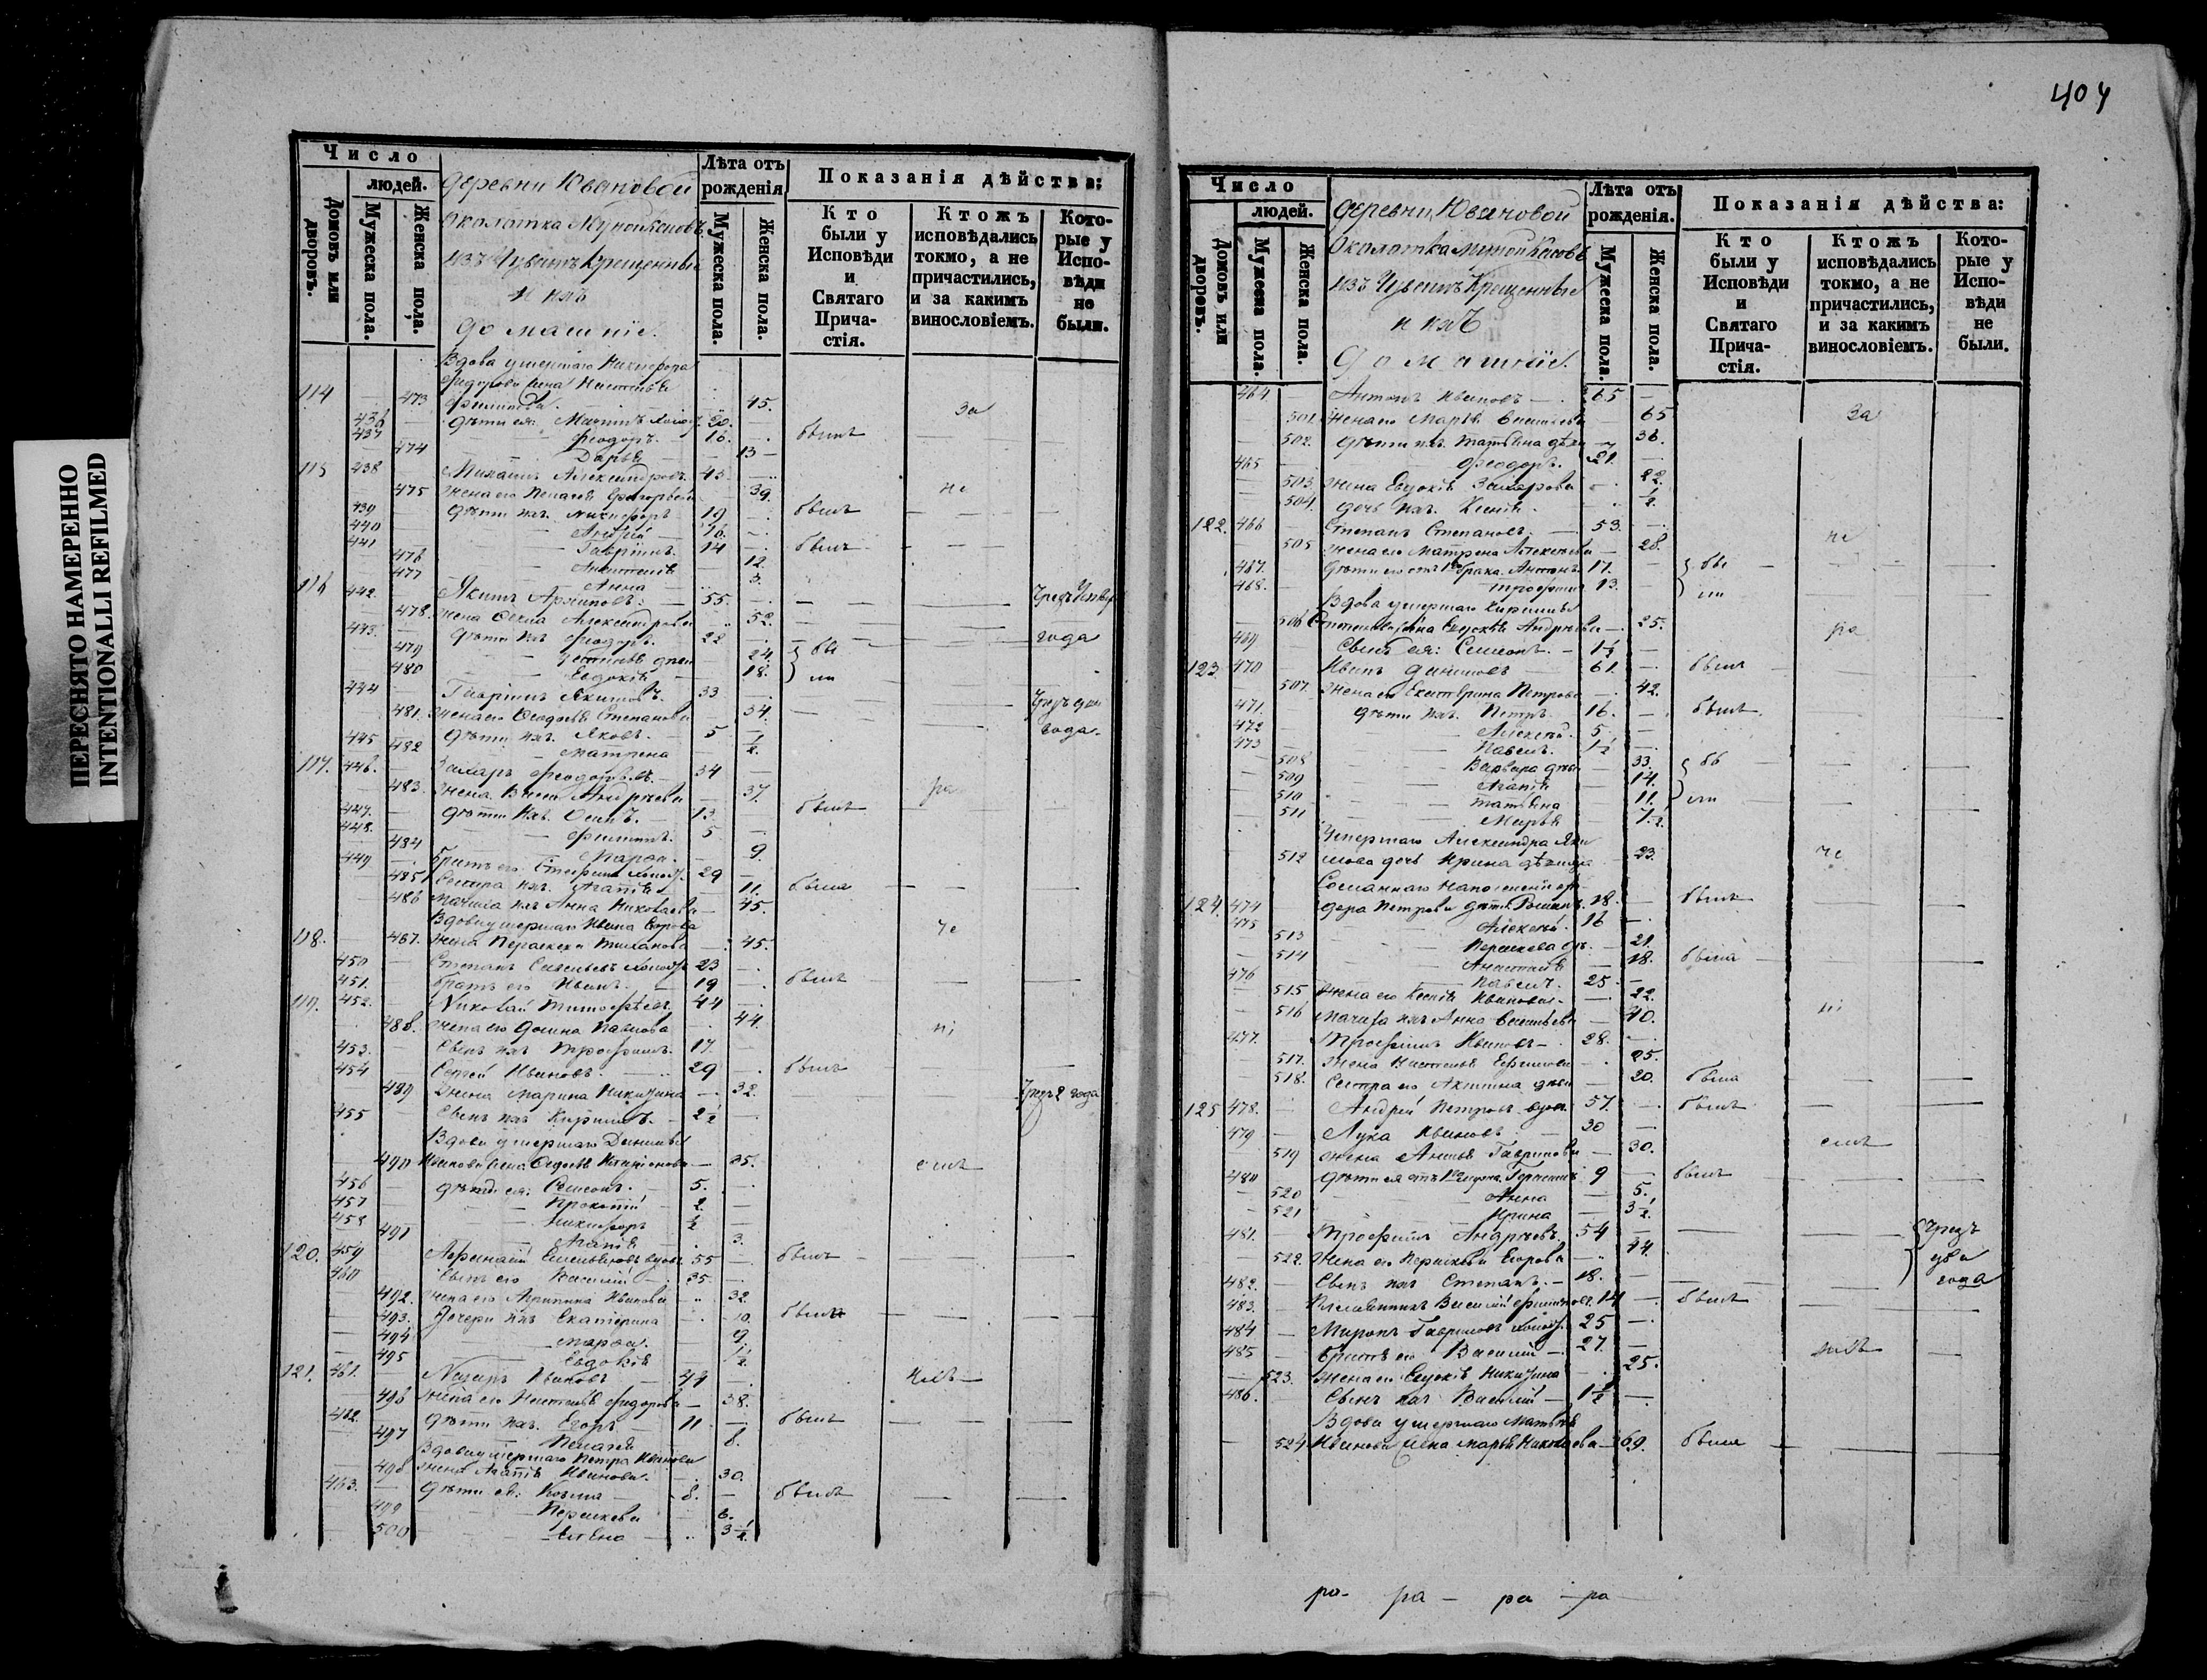 ПЕРЕСНЯТО НАМЕРЕННО
INTENTIONALLI REFILMED
404
Число
людей.
Домовъ или дворовъ.
Мужеска пола.
Женска пола.
Деревни Ювановой
Околотка
изъ Чувашъ Крещенные
и ихъ
домашніе.
Лѣта отъ рожденія
Мужеска пола.
Женска пола.
Показанія дѣйства:
Кто были у Исповѣди и Святаго Причастія.
Ктожъ исповѣдались токмо, а не причастились, и за какимъ винословіемъ.
Которые у Исповѣди не были.
Вдова умершаго Никифора
Федорова жена Настасья
114 473 Филипова 45. За
436 дѣти ея: Холост. 20.
437 Феодоръ. 16. бытъ
474 Дарья 13
115 438 Михаилъ Александровъ 45
475 жена его Пелагея Григорьева 39 не
439 дѣти ихъ. Никифоръ 19 былъ
440 Андрей 16
441 Гаврiилъ. 14 былъ
476 Анастасiя 12
477 Анна 3.
116 442. Якимъ Архиповъ: 55.
478. жена Александрова 52.
443. дѣти ихъ Феодоръ. 22 года
479 Устинья дѣви 24 бы
480 Евдокiя 18. ли
444 Гаврiилъ Якимовъ. 33
481. жена его Феодосья Степанова 34.
445 дѣти ихъ. Яковъ. 5 года
482 Матрена 1/2
117. 446. Захаръ Феодоровъ. 34
483. жена Андреева 37. ра
447. дѣти ихъ. Осипъ. 13 былъ
448. Филиппъ. 5
484 Марфа. 9.
449 братъ его Холост. 29
485 Сестра ихъ. Агапiя 11. была
486 Мачиха ихъ Анна Николаева 45.
Вдова умершаго Ивана Егорова
118. 487. жена Параскева 45. че
450 Степанъ Савельевъ холост 23
451. братъ его Иванъ. 19 былъ
119. 452. Николай Тимофѣевъ 44
488. жена его Домна Павлова 44. нi
453. Сынъ ихъ Трофимъ. 17.
454 Сергей Ивановъ. 29 былъ
489 Жена Марина Никитина 32. Чрезъ 2 года
455 Сынъ ихъ Кирилъ. 2 1/2
Вдова умершаго Данилы
490 Иванова жена Федосья 35. емъ
456 дѣти ея: Семенъ. 5.
457 Прокопiй 2
458 Никифоръ 1/2
491 Агапiя 3.
120. 459 Афанасiй Емельяновъ вдов 55 былъ
460 Сынъ его Василiй 35.
492. жена его Агрипина Иванова 32
493. Дочери ихъ Екатерина 10. были
494 Марфа. 9.
495 Евдокiя 1/2
121. 461. Назаръ Ивановъ 44
496 жена его Настасья Федорова 38.
462. дѣти ихъ. Егоръ 11 былъ
497 Пелагея 8.
Вдова умершаго Петра Иванова
498 жена Агапiя Иванова. 30
463. дѣти ея: Козма 8. былъ
499 Параскева 6.
500 Елена 3 1/2
Число
людей.
Домовъ или дворовъ.
Мужеска пола.
Женска пола.
Деревни Ювановой
Околотка
изъ Чувашъ Крещенные
и ихъ
Домашнiе.
Лѣта отъ рожденія.
Мужеска пола.
Женска пола.
Показанія дѣйства:
Кто были у Исповѣди и Святаго Причастія.
Ктожъ исповѣдались токмо, а не причастились, и за какимъ винословіемъ.
Которые у Исповѣди не были.
464 Антонъ Ивановъ 65
501. жена его Марья Васильева 65 За
502. дѣти ихъ. Татьяна дѣви 36.
465 Феодоръ. 21.
503. жена Евдокiя Захарова 22.
504. дочь ихъ. Ксенiя 1/2
122. 466 Степанъ Степановъ. 53.
505 жена его Матрена Алексѣева 28. не
467. дѣти его отъ 1го брака. Антонъ 17. бы
468. Трофимъ 13. ли
Вдова умершаго Кирилы
506 Степанова жена Евдокiя Андрѣева 25. ра
469 Сынъ ея: Семенъ. 1 1/2
123. 470 Иванъ Даниловъ 61. былъ
507. жена его Екатерина Петрова 42.
471. дѣти ихъ. Петръ 16. былъ
472 Алексѣй. 5
473 Павелъ. 1 1/2
508 Варвара дѣви 33. бы
509 Агапiя 14.
510 Татьяна 11. ли
511 Марья
Умершаго Александра Яки
512 мова дочь Ирина дѣвица 23. че
124. 474 дора Петрова дѣти. 18. былъ
475 Алексѣй. 16
513 Параскева дѣ. 21.
514 Анастасiя 18. была
476 Павелъ. 25
515 жена его Ксенiя Иванова. 22.
516 Мачиха ихъ Анна Васильева 40. нi
477. Трофимъ Ивановъ 28.
517. жена Настасья Ефимова 25.
518. Сестра его Акилина дѣви 20. была
125 478. Андрей Петровъ вдов. 57. былъ
479 Лука Ивановъ 30
519 жена Анисья Гаврилова 30. емъ
480 дѣти ея отъ 1го мужа. 9 былъ
520 Анна 5.
521 Ирина 3 1/2
481. Трофимъ Андрѣевъ. 54 Чрезъ
522. жена его Параскева Егорова 44. два
482 Сынъ ихъ Степанъ. 18. года
483. Василiй 14 былъ
484 Миронъ Гавриловъ холост. 25
485 братъ его Василiй 27.
523. жена его Евдокiя Никитина 25.
486. Сынъ ихъ Василiй 1 1/2
Вдова умершаго Матвѣя
524 Иванова жена Марья Николаева 69. была
ра- ра - ра - ра